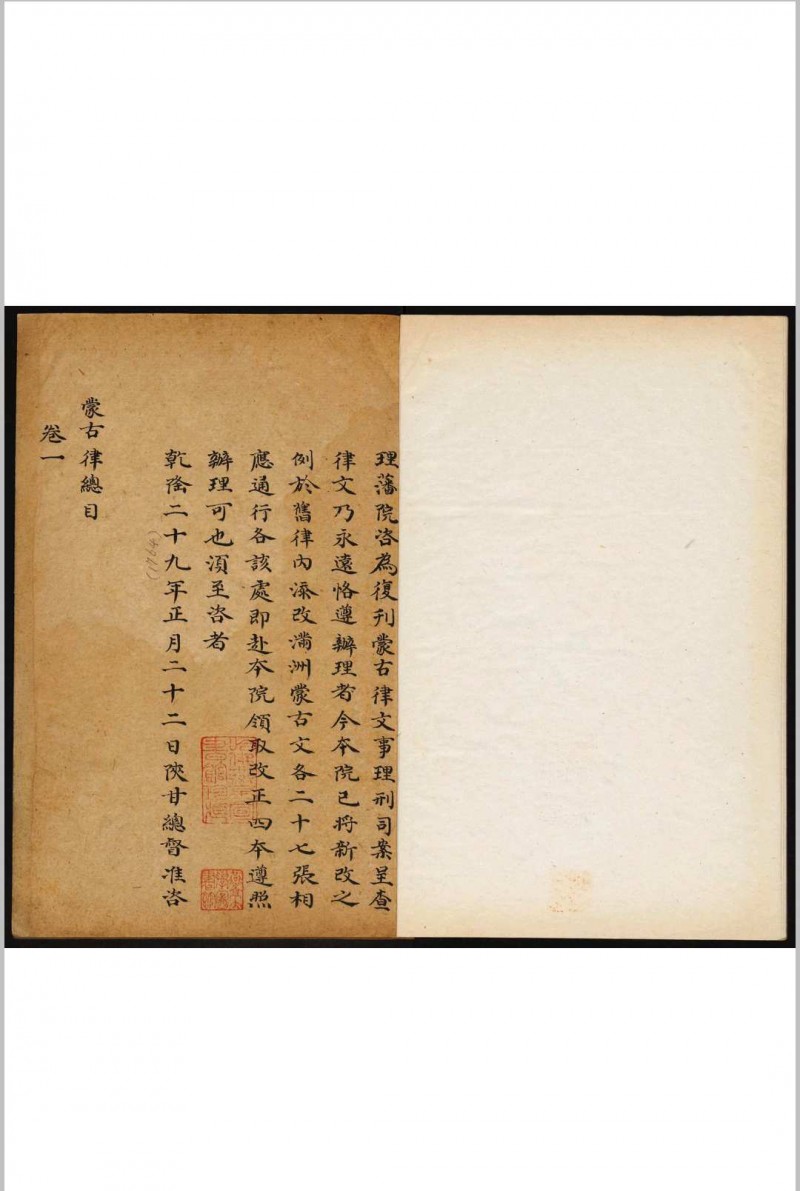 理藩院咨為復刊蒙古律文事理刑司案呈查
律文乃永遠恪遵辦理者今本院已將新改之
例於舊律內添改滿洲蒙古文各二十七張相
應通行各該處即赴本院領取改正四本遵照
辦理可也須至咨者
乾隆二十九年正月二十二日陝甘總督准咨
(1764)
蒙古律總目
卷一